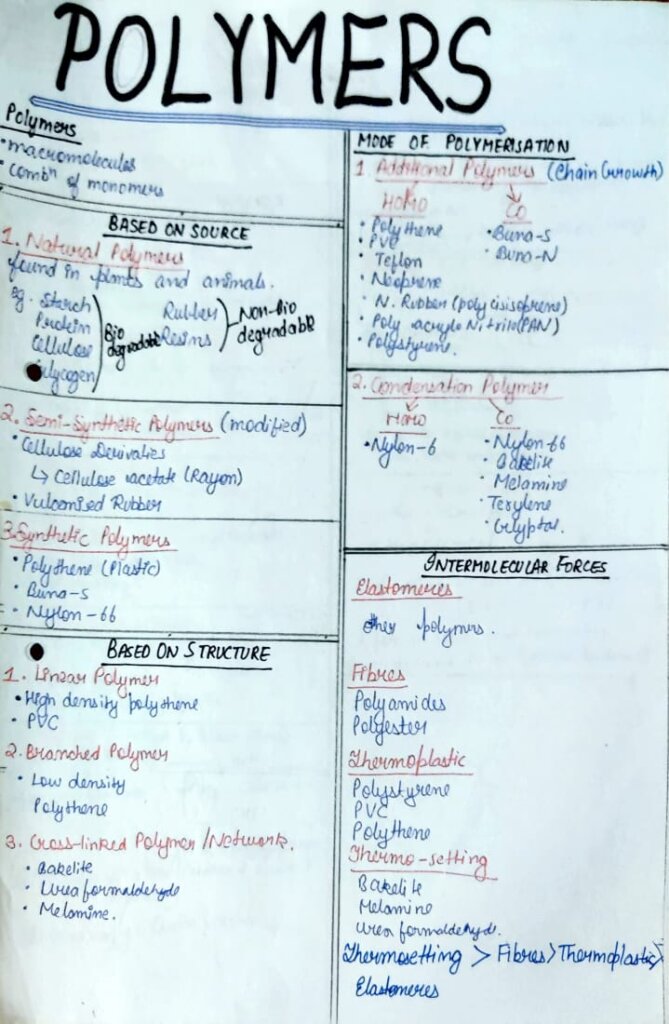 POLYMERS
Polymers
• macromolecules
• combⁿ of monomers
BASED ON SOURCE
1. Natural Polymers
found in plants and animals.
eg. Starch
Protein
Cellulose
Glycogen
Bio
degradable
Rubber
Resins
Non-Bio
degradable
2. Semi-Synthetic Polymers (modified)
• Cellulose Derivaties
↳ Cellulose acetate (Rayon)
• Vulcanised Rubber
3. Synthetic Polymers
• Polythene (Plastic)
• Buna-S
• Nylon-66
BASED ON STRUCTURE
1. Linear Polymer
• High density polythene
• PVC
2. Branched Polymer
• Low density
Polythene
3. Cross-linked Polymer /Network.
• Bakelite
• Urea formaldehyde
• Melamine.
MODE OF POLYMERISATION
1. Additional Polymers (Chain Growth)
HOMO
• Polythene
• PVC
• Teflon
• Neoprene
• N. Rubber (poly cisisoprene)
• Poly acrylo Nitrile (PAN)
• Polystyrene.
CO
• Buna-S
• Buna-N
2. Condensation Polymer
Homo
• Nylon-6
Co
• Nylon-66
• Bakelite
• Melamine
• Terylene
• Glyptal.
INTERMOLECULAR FORCES
Elastomeres
other polymers.
Fibres
Polyamides
Polyester
Thermoplastic
Polystyrene
PVC
Polythene
Thermo-setting
Bakelite
Melamine
Urea formaldehyde.
Thermosetting > Fibres > Thermoplastic >
Elastomeres